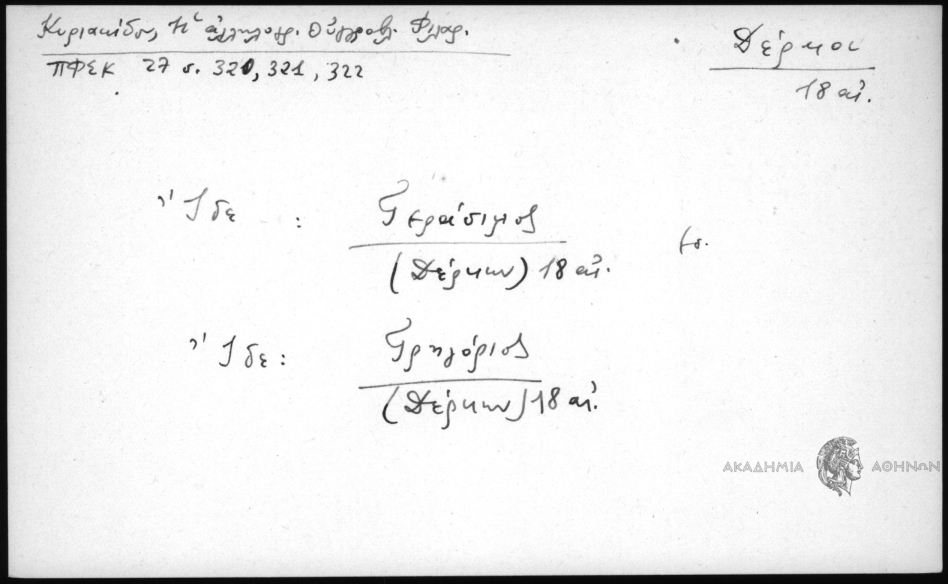 Κυριακίδου, Ἡ ἀλληλογρ. Οὐγγροβλ. Φιλαρ.
ΠΦΣΚ 27 σ. 320, 321, 322
Δέρκοι
18 αἰ.
Ἴδε : Γεράσιμος
(Δέρκων) 18 αἰ.
Ἴδε : Γρηγόριος
(Δέρκων) 18 αἰ.
ΑΚΑΔΗΜΙΑ ΑΘΗΝΩΝ